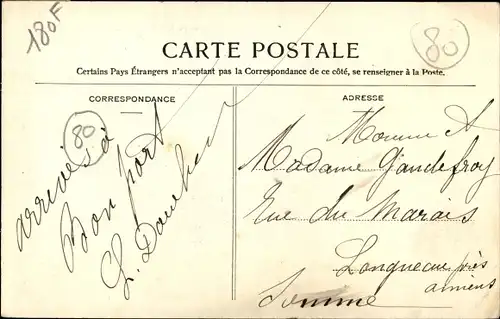 180F
80
CARTE POSTALE
Certains Pays Étrangers n'acceptant pas la Correspondance de ce côté, se renseigner à la Poste.
CORRESPONDANCE
80
arrivés à
Bon port
ADRESSE
Madame Gaudefroy
Rue du Marais
Longueau près
amiens
Somme